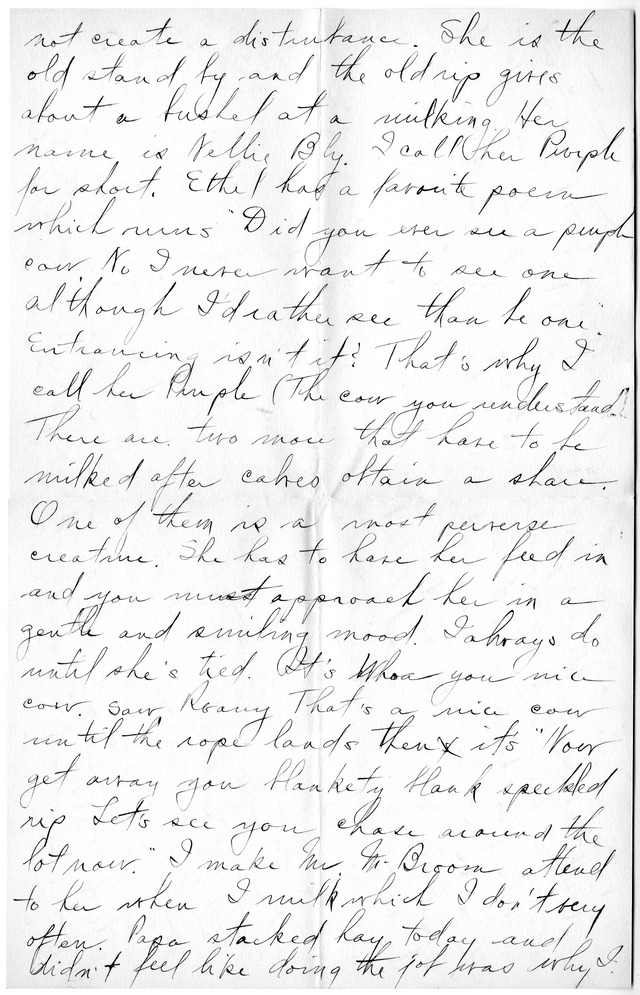 not create a disturbance. She is the
old stand by and the old rip gives
about a bushel at a milking Her
name is Nellie Bly. I call her Purple
for short. Ethel has a favorite poem
which runs "Did you ever see a purple
cow. No I never want to see one
although I'd rather see than be one".
Entrancing isn't it? That's why I
call her Purple (The cow you understand).
There are two more that have to be
milked after calves obtain a share.
One of them is a most perverse
creature. She has to have her feed in
and you must approach her in a
gentle and smiling mood. I always do
until she's tied. It's Whoa you nice
cow. Saw Roany That's a nice cow
until the rope lands then its "Now
get away you blankety blank speckled
rip Let's see you chase around the
lot now." I make Mr. Mc Broom attend
to her when I milk which I don't very
often. Papa stacked hay today and
didn't feel like doing the job was why I